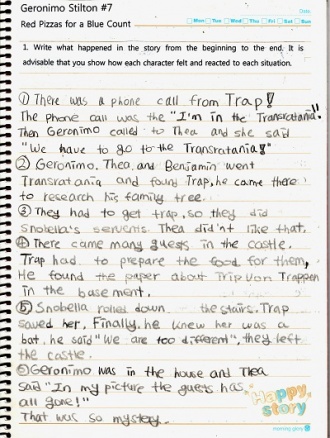 Geronimo Stilton #7
Red Pizzas for a Blue Count
Date.
Mon Tue Wed Thu Fri Sat Sun
1. Write what happened in the story from the beginning to the end. It is
advisable that you show how each character felt and reacted to each situation.
① There was a phone call from Trap!
The phone call was the "I'm in the Transratania!"
Then Geronimo called to Thea and she said
"We have to go to the Transratania!"
② Geronimo, Thea, and Benjamin went
Transratania and found Trap, he came there
to research his family tree.
③ They had to get trap, so they did
Snobella's servents. Thea did'nt like that.
④ There came many guests in the castle.
Trap had to prepare the food for them,
He found the paper about Trip Von Trappen
in the basement.
⑤ Snobella rolled down the stairs. Trap
saved her. Finally, he knew her was a
bat. he said "We are too different", they left
the castle.
Geronimo was in the house and Thea
said "In my picture the guests has
all gone!"
That was so mystery.
Happy,
story
morning glory